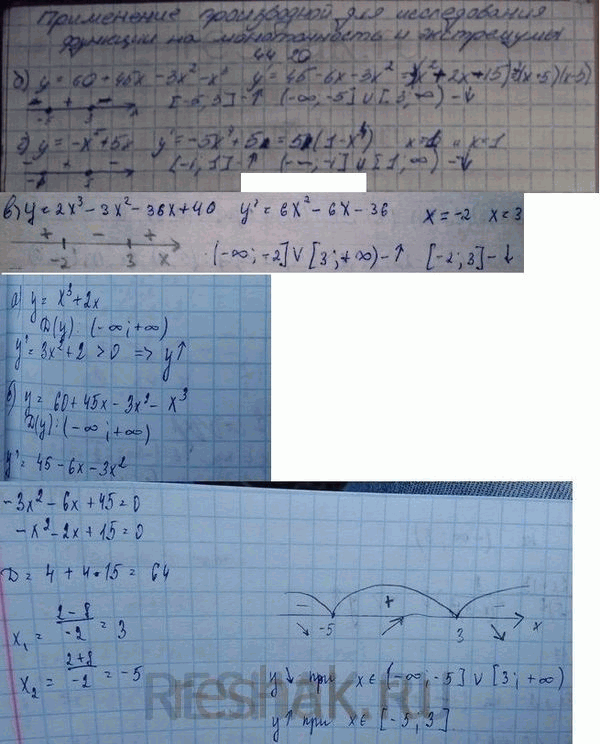 Применение производной для исследования
функции на монотонность и экстремумы
44 20
б) y = 60 + 45x - 3x² - x³ y = 45 - 6x - 3x² =
- + -
-5 3
[-5, 3] - ↑ (-∞, -5] ∪ [3, ∞) - ↓
г) y = -x⁵ + 5x y' = -5x⁴ + 5 = 5(1 - x⁴) x = 1
- + -
(-1, 1] - ↑ [1, ∞) - ↓
в) y = 2x³ - 3x² - 36x + 40 y' = 6x² - 6x - 36 x = -2 x = 3
+ - +
-2 3 x
(-∞; -2] ∪ [3; +∞) - ↑ [-2; 3] - ↓
а) y = x³ + 2x
D(y): (-∞; +∞)
y' = 3x² + 2 > 0 => y↑
б) y = 60 + 45x - 3x² - x³
D(y): (-∞; +∞)
y' = 45 - 6x - 3x²
-3x² - 6x + 45 = 0
-x² - 2x + 15 = 0
D = 4 + 4•15 = 64
x₁ = (2-8)/-2 = 3
x₂ = (2+8)/-2 = -5
- + -
-5 3 x
y↓ при x ∈ (-∞; -5] ∪ [3; +∞)
y↑ при x ∈ [-5; 3]
Reshak.ru